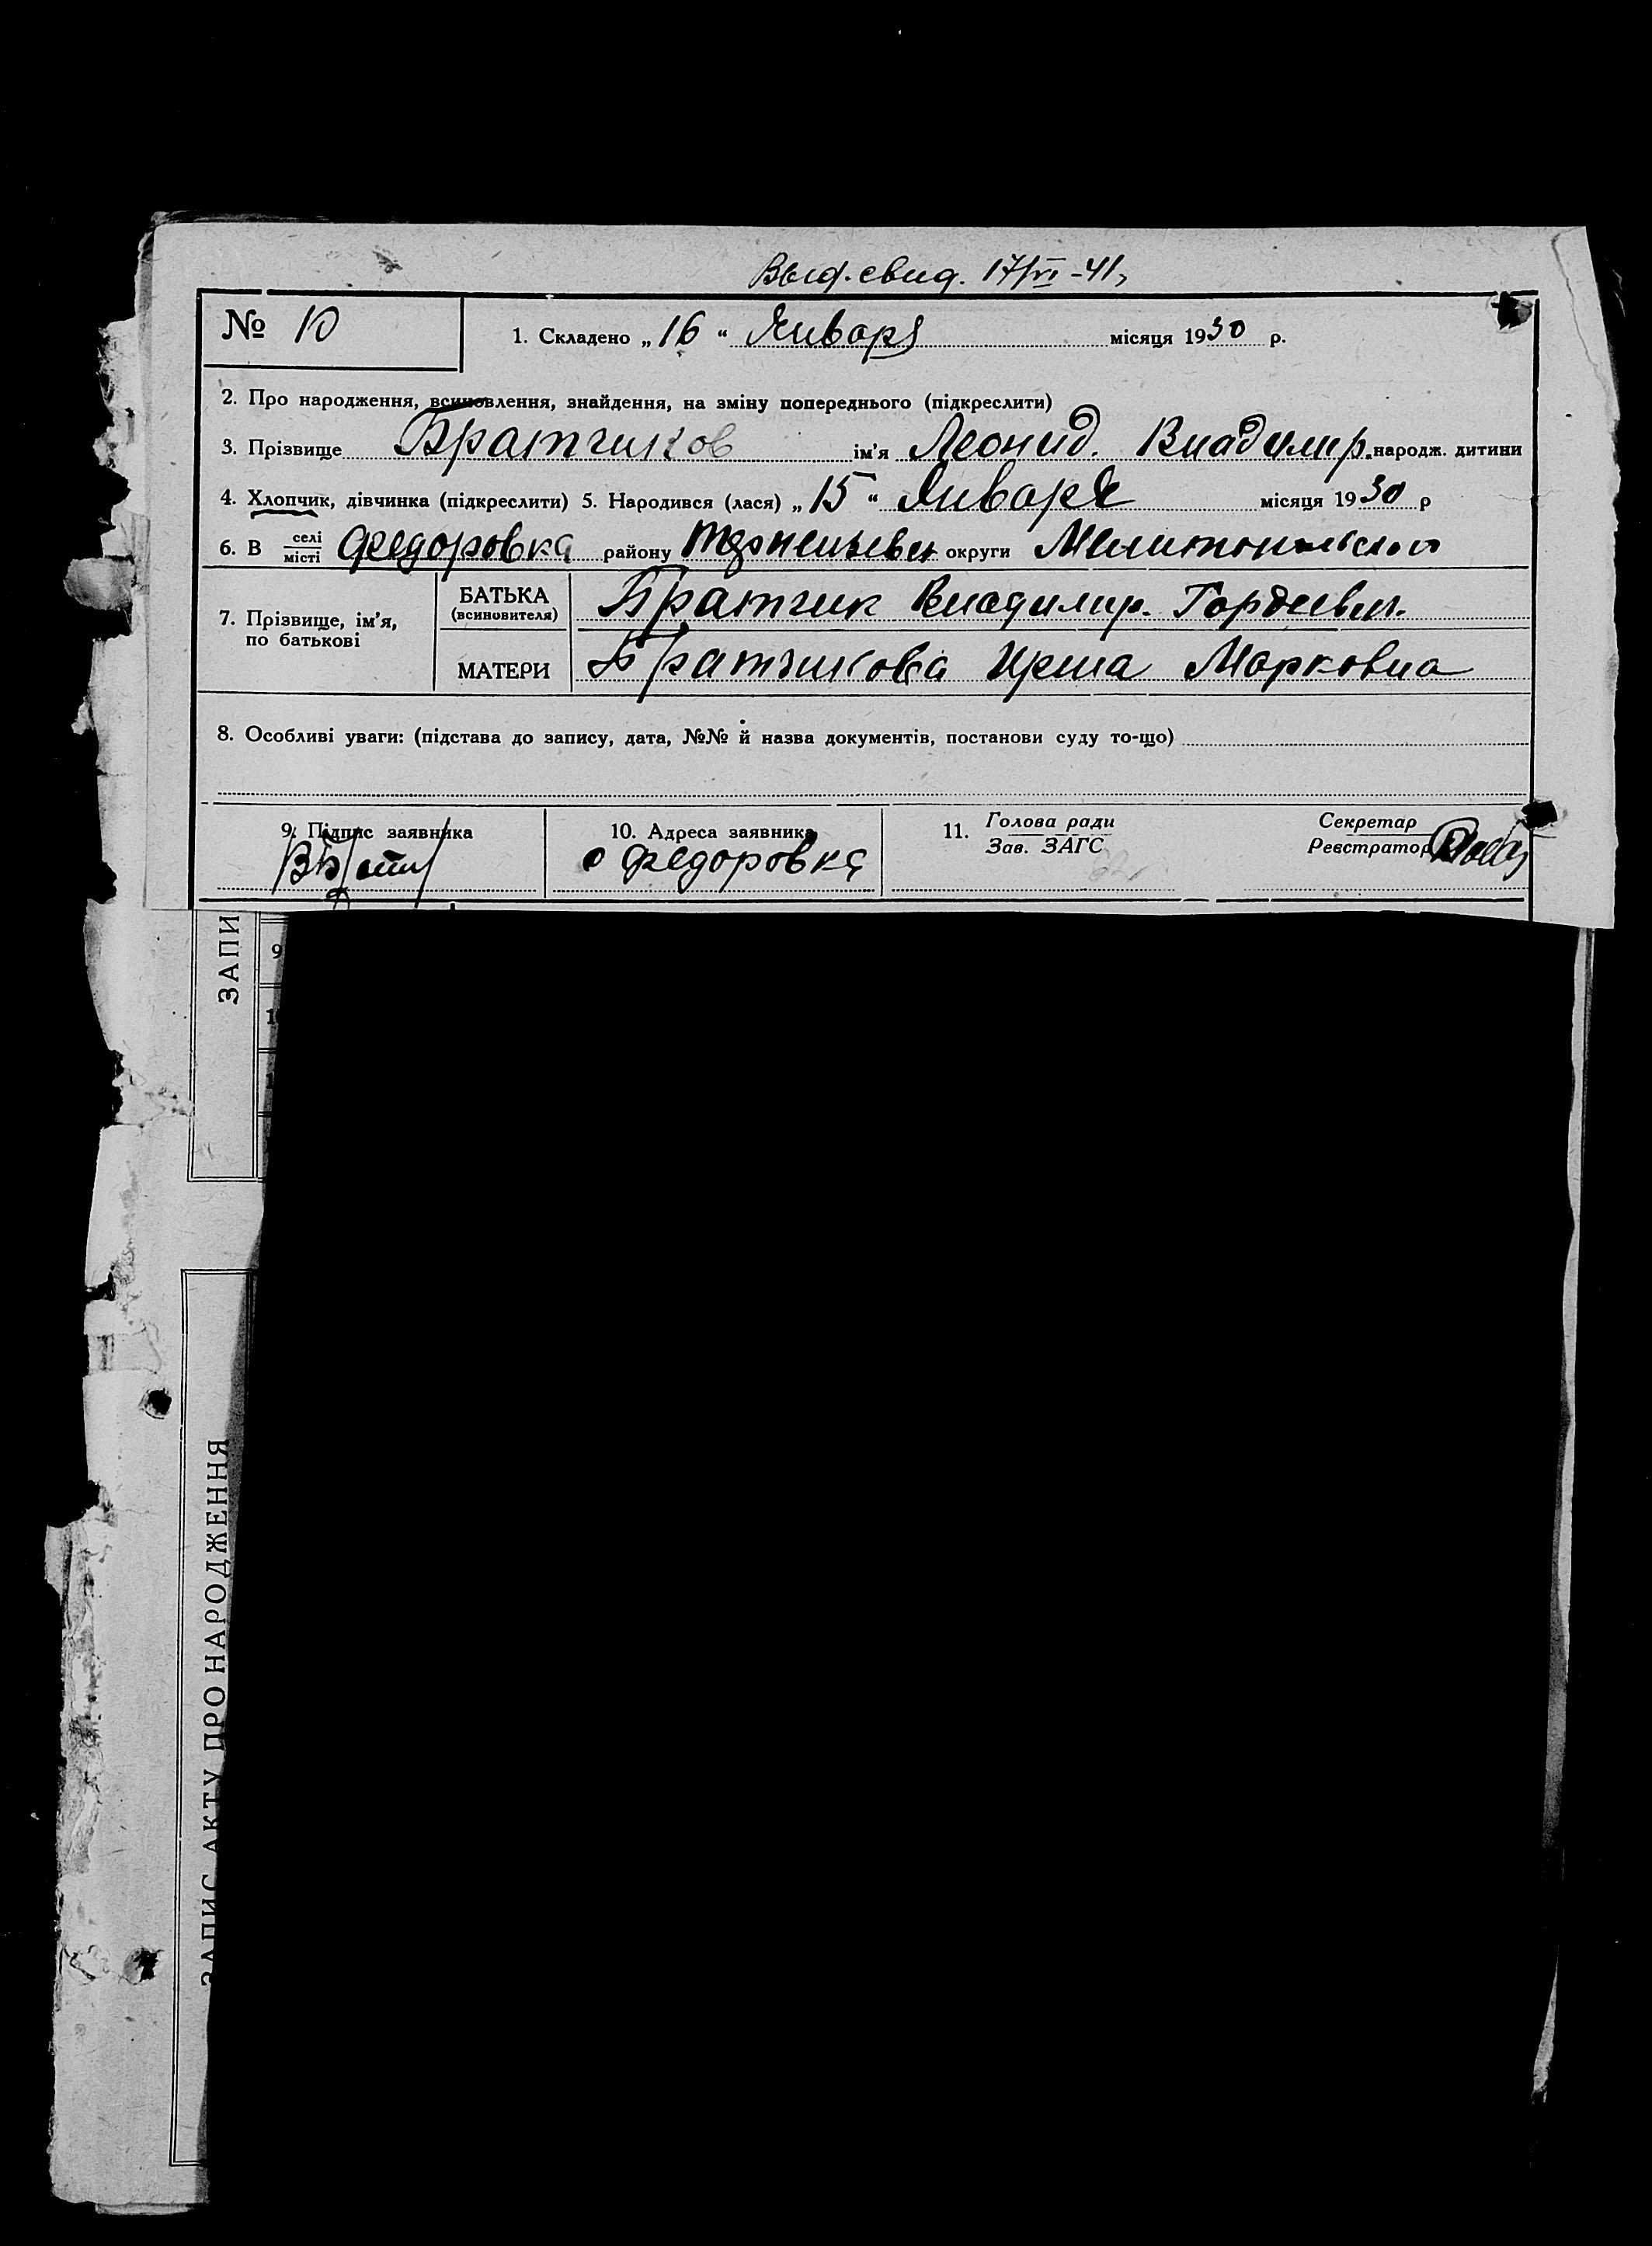 Выд. свид. 17/VI-41,
№ 10
1. Складено „16“ Января місяця 1930 р.
2. Про народження, всиновлення, знайдення, на зміну попереднього (підкреслити)
3. Прізвище Братчиков ім'я Леонид. Владимир. народж. дитини
4. Хлопчик, дівчинка (підкреслити) 5. Народився (лася) „15“ Января місяця 1930 р
6. В селі місті Федоровка району округи Мелитопольской
7. Прізвище, ім'я, по батькові
БАТЬКА (всиновителя) Братчик Владимир. Гордеевич.
МАТЕРИ Братчикова Ирина Марковна
8. Особливі уваги: (підстава до запису, дата, №№ й назва документів, постанови суду то-що)
9. Підпис заявника
10. Адреса заявника
с Федоровка
11. Голова ради
Зав. ЗАГС
Секретар
Реєстратор
ЗАПИ
9
1
ЗАПИС АКТУ ПРО НАРОДЖЕННЯ